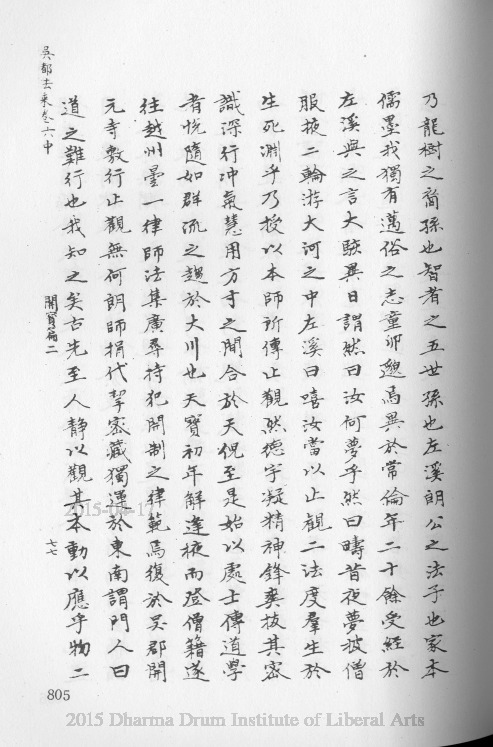 吳都法乘卷六中
乃龍樹之裔孫也智者之五世孫也左溪朗公之法子也家本
儒墨我獨有邁俗之志童丱邈焉異於常倫年二十餘受經於
左溪與之言大駭異日謂然曰汝何夢乎然曰疇昔夜夢披僧
服掖二輪游大河之中左溪曰嘻汝當以止觀二法度羣生於
生死淵乎乃授以本師所傳止觀然德宇凝精神鋒爽拔其密
識深行沖氣慧用方寸之間合於天倪至是始以處士傳道學
者悅隨如群流之趨於大川也天寶初年解逢掖而登僧籍遂
往越州曇一律師法集廣尋持犯開制之律範焉復於吳郡開
元寺敷行止觀無何朗師捐代挈密藏獨運於東南謂門人曰
道之難行也我知之矣古先至人靜以觀其本動以應乎物二
開寶篇二
七七
805
2015-04-17
2015 Dharma Drum Institute of Liberal Arts